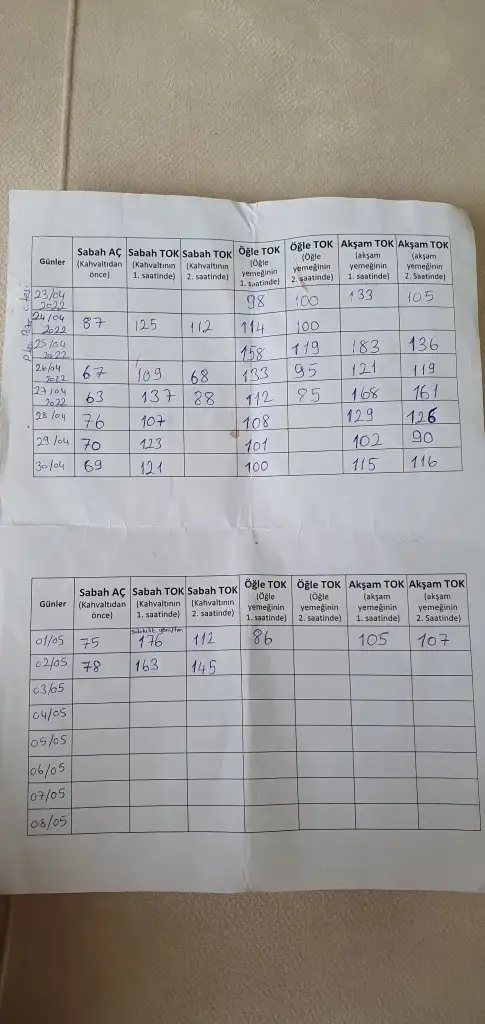 Günler Sabah AÇ (Kahvaltıdan önce) Sabah TOK (Kahvaltının 1. saatinde) Sabah TOK (Kahvaltının 2. saatinde) Öğle TOK (Öğle yemeğinin 1. saatinde) Öğle TOK (Öğle yemeğinin 2. saatinde) Akşam TOK (akşam yemeğinin 1. saatinde) Akşam TOK (akşam yemeğinin 2. Saatinde)
23/04 2022 98 100 133 105
24/04 2022 87 125 112 114 100
25/04 2022 158 119 183 136
26/04 2022 67 109 68 133 95 121 119
27/04 2022 63 137 88 112 85 168 161
28/04 76 107 108 129 126
29/04 70 123 101 102 90
30/04 69 121 100 115 116
Günler Sabah AÇ (Kahvaltıdan önce) Sabah TOK (Kahvaltının 1. saatinde) Sabah TOK (Kahvaltının 2. saatinde) Öğle TOK (Öğle yemeğinin 1. saatinde) Öğle TOK (Öğle yemeğinin 2. saatinde) Akşam TOK (akşam yemeğinin 1. saatinde) Akşam TOK (akşam yemeğinin 2. Saatinde)
01/05 75 176 112 86 105 107
02/05 78 163 145
03/05
04/05
05/05
06/05
07/05
08/05